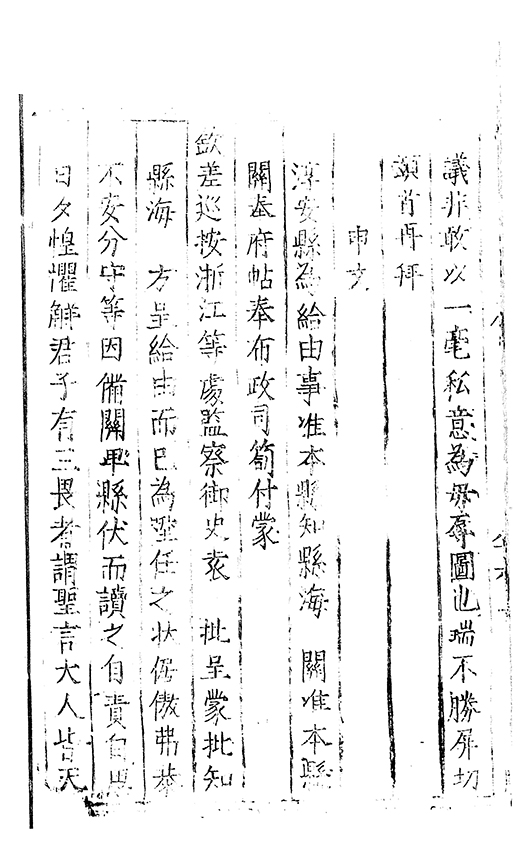 議非敢以一毫私意為毋辱圖也瑞不勝屏切
頌首再拜
申文
淳安縣為給由事准本縣知縣海　關准本縣
關奉府帖奉布政司箚付蒙
欽差巡按浙江等處監察御史袁　批呈蒙批知
縣海　方呈給由而已為涖任之狀倨傲弗恭
不安分守等因備關畢縣伏而讀之自責自
日夕惶懼觧君子有三畏者謂聖言大人皆天